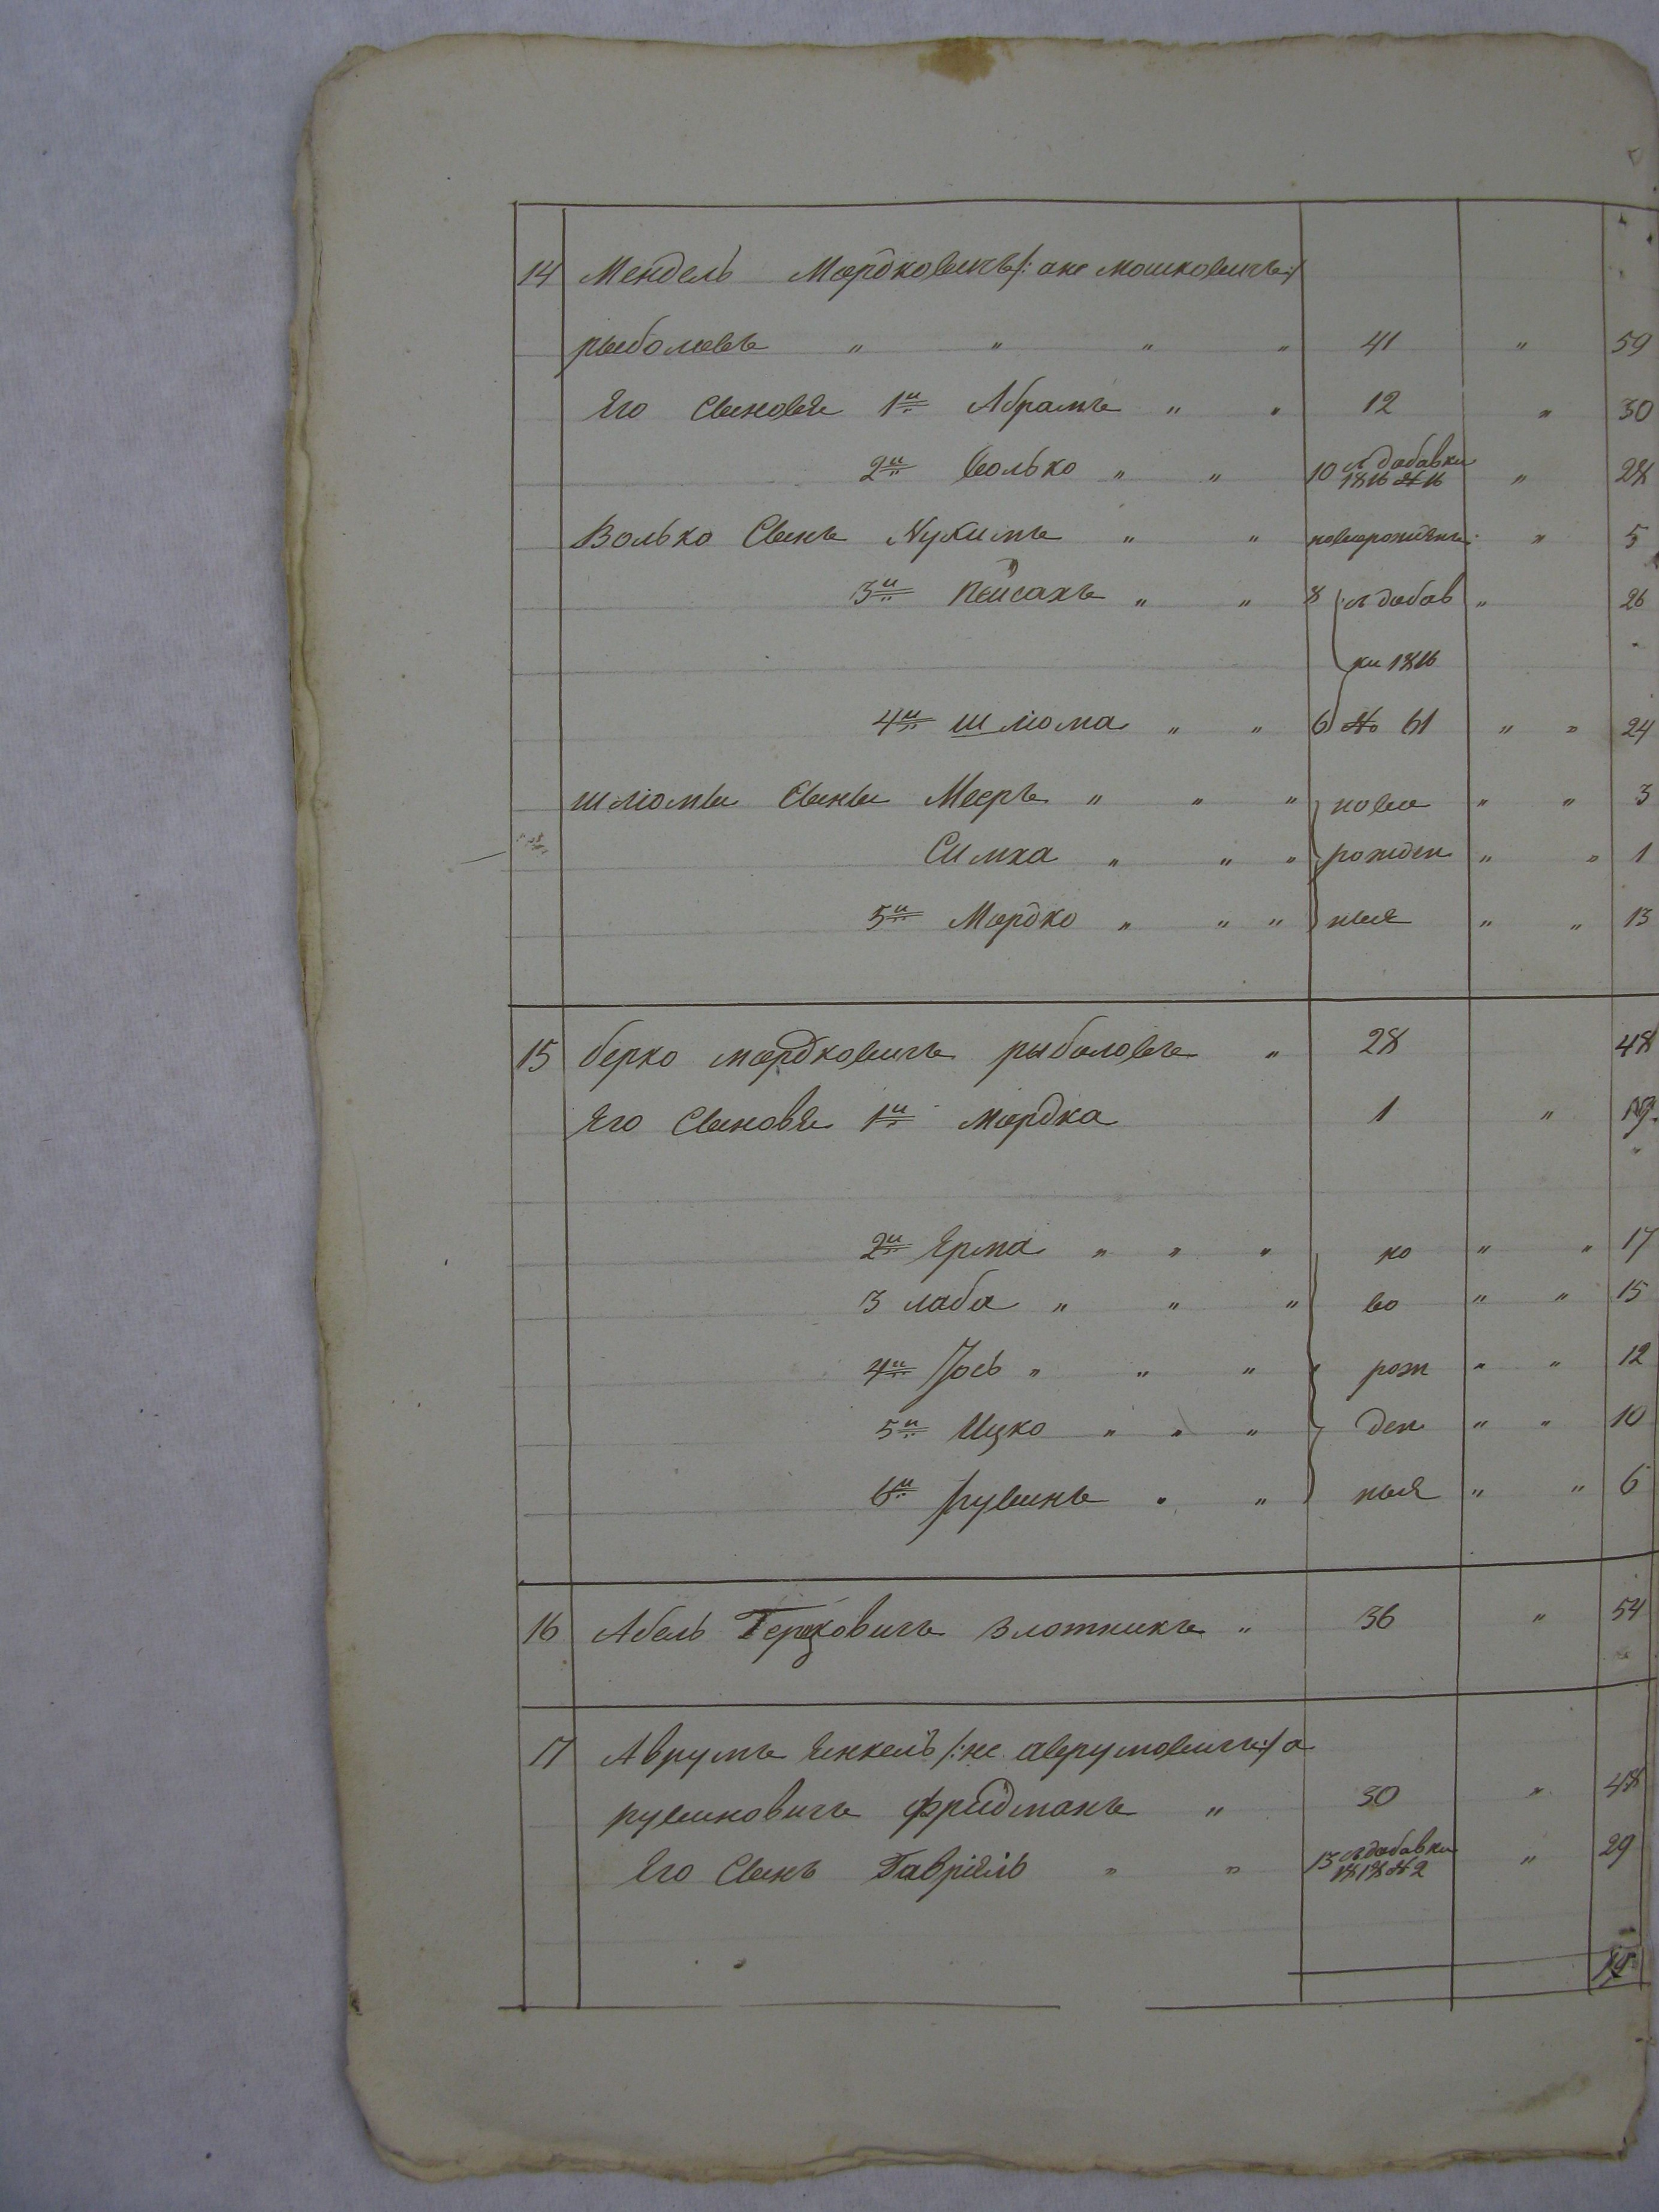 14 Мендель Мордковичъ /: ане мошковичъ :/
рыболовъ " " " " 41 " 59
Его Сыновья 1й Абрамъ " " 12 " 30
2й Волько " " 10 л добавки 1816 № 16 " 28
Волько Сынъ Нухимъ " " новорожден: " 5
3й Пейсахъ " " 8 л добав " 26
ки 1816
4й шліома " " 6 № 61 " " 24
шліомы Сыны Мееръ " " " ново " " 3
Симха " " " рожден " " 1
5й Мордко " " " ныя " " 13
15 берко мордковичъ рыболовъ " 28 48
Его Сыновья 1й мордка 1 "
2й Ерма " " " но " " 17
3 лаба " " " во " " 15
4й Іось " " " рож " " 12
5й Ицко " " " ден " " 10
6й рувинъ " " ныя " " 6
16 Абель Герцковичъ Злотникъ " 36 " 54
17 Аврумъ Янкель /: не аврумовичъ :/ а
рувиновичъ фридманъ " 30 " 48
Его Сынъ Гавріель " " 13 л добавки 1818 № 2 " 29